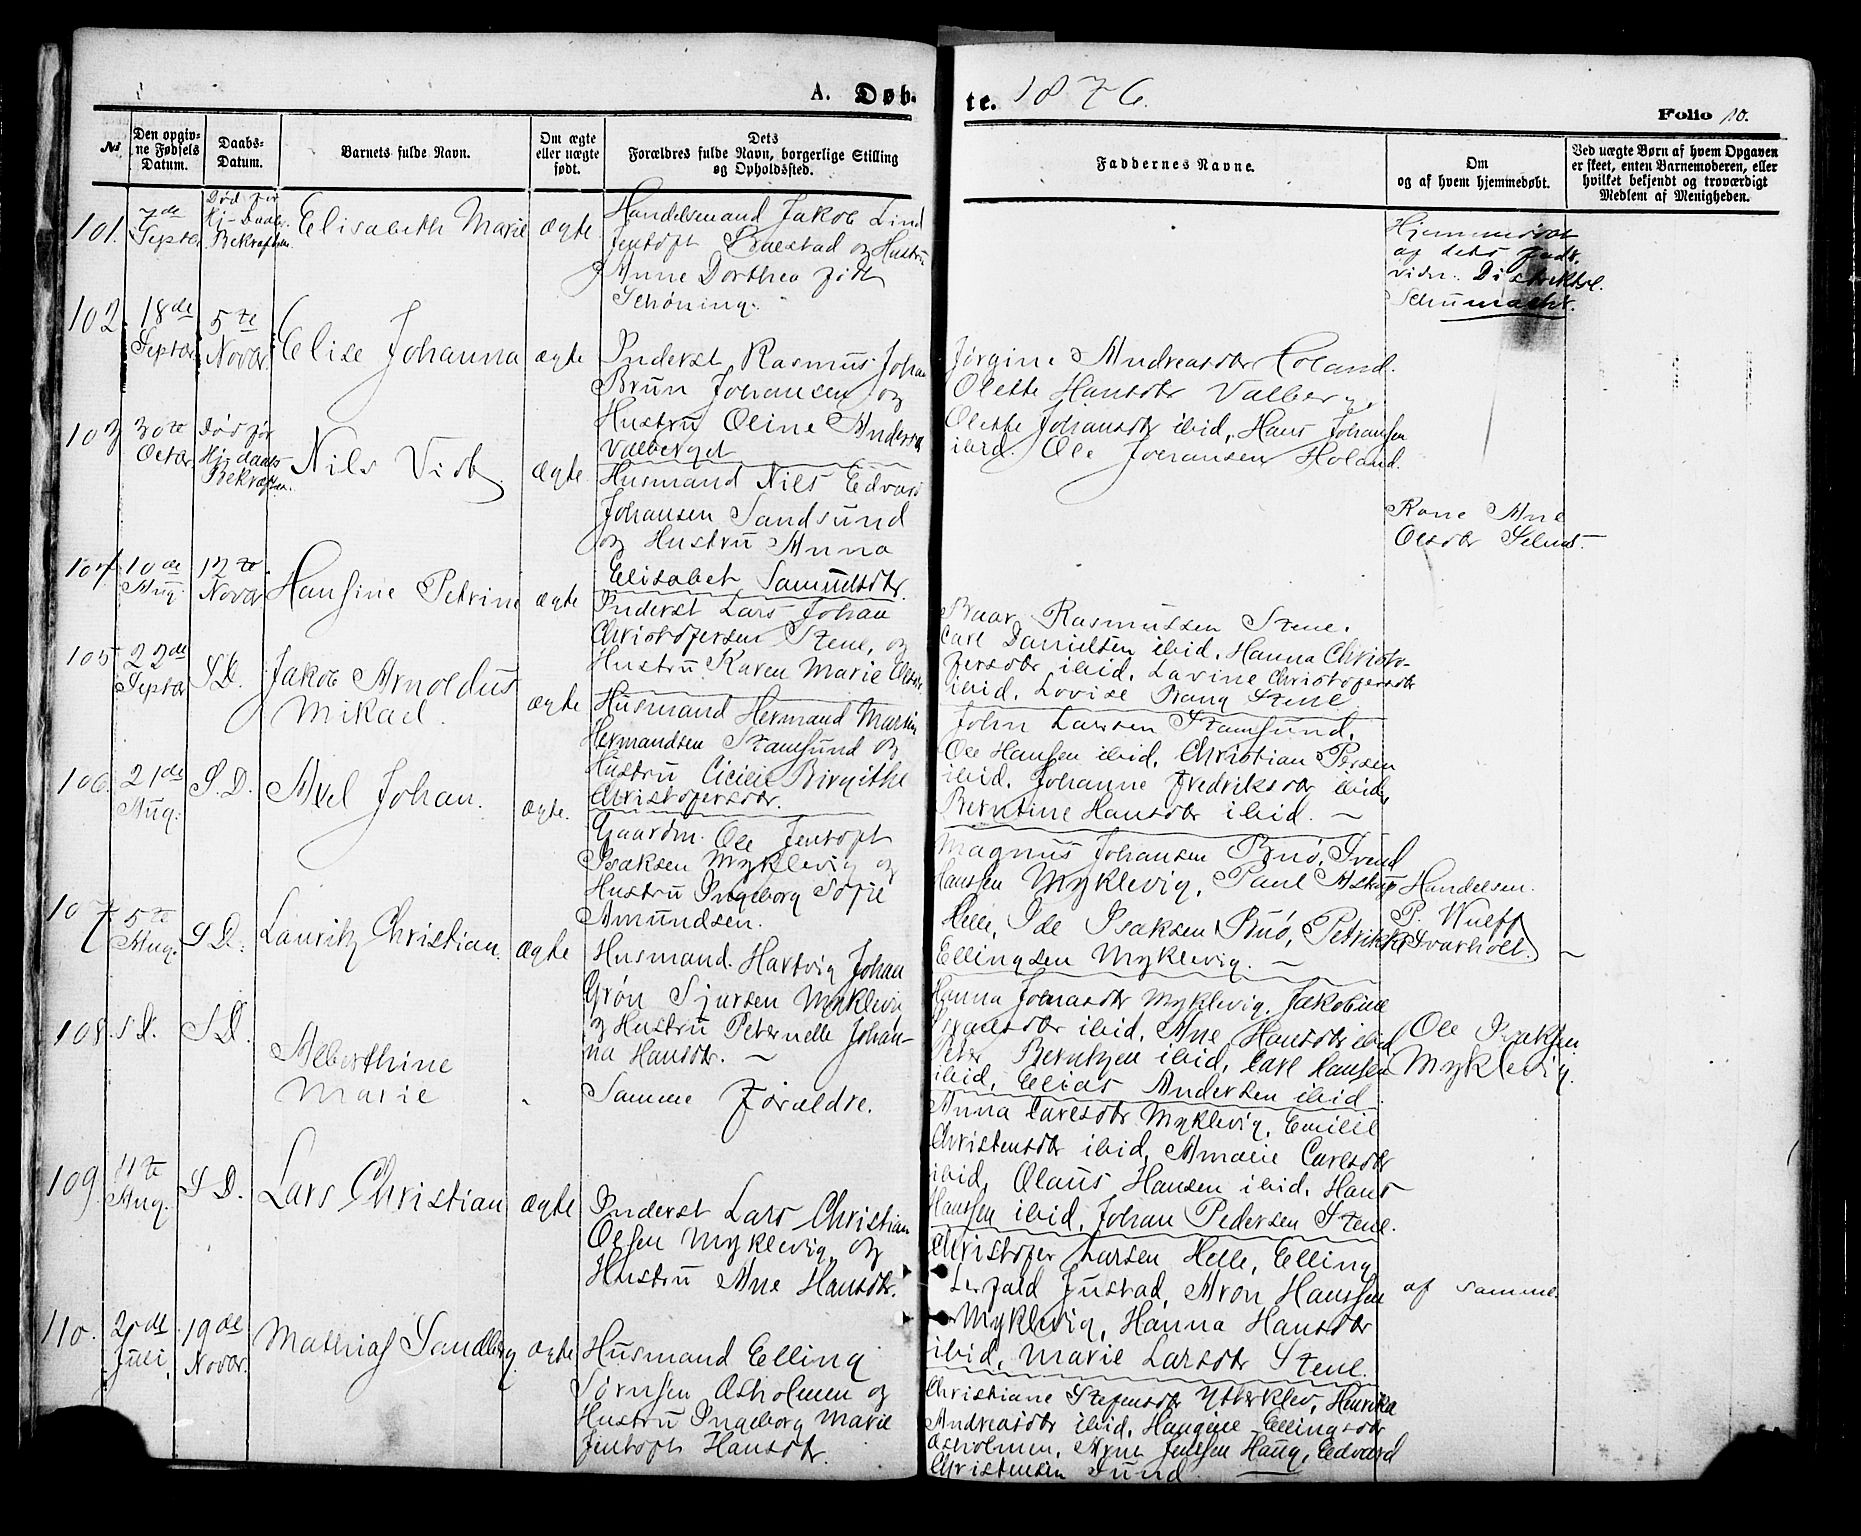 A. Døb-
te. 1876.
Folio 10.
No
Den opgiv-
ne Fødsels
Datum.
Daabs-
Datum.
Barnets fulde Navn.
Om ægte
eller uægte
født.
Dets
Forældres fulde Navn, borgerlige Stilling
og Opholdssted.
Faddernes Navne.
Om
og af hvem hjemmedøbt.
Ved uægte Børn af hvem Opgaven
er skeet, enten Barnemoderen, eller
hvilket bekjendt og troværdigt
Medlem af Menigheden.
101.
7de
Septbr
Død før
Hj-Daabs
Bekræftsen.
Elisabeth Marie
ægte.
Handelsmand Jakob Lind
Jentoft Balestad og Hustru
Anne Dorthea født
Schöning.
Hjemmedøbt
af dets Fader
vidn. Distriktsl.
Schumacher.
102.
18de
Septbr
5te
Novbr.
Elise Johanna
ægte
Inderst Rasmus Johan
Brun Johansen og
Hustru Oline Andersd
Valberget
Jørgine Andreasdtr Holand.
Olette Hansdtr Valberg,
Olette Johansdtr ibid, Hans Johansen
ibid. Ole Johansen Holand.
103
30te
Octbr.
Død før
Hj-daabs
Bekræftsen.
Nils Vist
ægte.
Husmand Nils Edvard
Johansen Sandsund
og Hustru Anna
Elisabet Samuelsdtr.
Kone Ane
Olsdtr
104
10de
Aug.
12te
Novbr
Hansine Petrine
ægte
Inderst Lars Johan
Christofersen Stene, og
Hustru Karen Marie Elesdtr
Baar Rasmussen Stene.
Carl Danielsen ibid, Hanna Christo-
fersdtr ibid, Lavine Christofersdtr
ibid, Lovise Bang Stene
105
22de
Septbr
S.D.
Jakob Arnoldus
Mikael.
ægte
Husmand Hermand Martin
Hermandsen Stamsund og
Hustru Cicilie Birgithe
Christofersdtr.
John Larsen Stamsund,
Ole Hansen ibid, Christian Persen
ibid. Johanne Fredriksdtr ibid,
Berntine Hansdtr ibid. —
106
21de
Aug.
S.D.
Axel Johan.
ægte.
Gaardm. Ole Jentoft
Isaksen Myklevig og
Hustru Ingeborg Sofie
Amundsen.
Magnus Johansen Bnø, Svend
Hanssen Myklevig, Paul Astrup
Helle, Ide Isaksen Bnø, Petrikke
Ellingsen Myklevig. —
Handelsm.
P. Wulff
Svarholt. —
107
5te
Aug.
S.D.
Lauritz Christian.
ægte
Husmand. Hartvig Johan
Grøn Sjursen Myklevig
og Hustru Peternelle Johan-
na Hansdtr. —
Hanna Johnasdtr Myklevig, Jakobine
ibid, Ane Hansdtr ibid
Peter Berntzen ibid, Carl Hansen
ibid, Elias Andersen ibid
Ole Isaksen
Myklevig.
108.
S.D.
S.D.
Alberthine
Marie
Samme Forældre.
Anna Carlsdtr Myklevig, Emilie
Christensdtr ibid, Amalie Carlsdtr
ibid, Olaus Hansen ibid, Hans
Hanssen ibid, Johan Pedersen Stene.
109
11te
Aug.
S.D.
Lars Christian
ægte
Inderst Lars Christian
Olsen Myklevig og
Hustru Ane Hansdtr.
Christofer Larsen Helle, Elling
Justad, Aron Hanssen
Myklevig, Hanna Hansdtr
ibid, Marie Larsdtr Stene.
af samme.
110.
20de
Juli.
19de
Novbr.
Mathias Sandberg.
ægte
Husmand Elling
Sørnsen Osholmen og
Hustru Ingeborg Marie
Jentoft Hansdtr.
Christiane Stefensdtr Ytterklev, Henrika
Andreasdtr ibid, Hansine Ellingsdtr
Osholmen, Arnt Jenssen Haug, Edvard
Christensen Sund